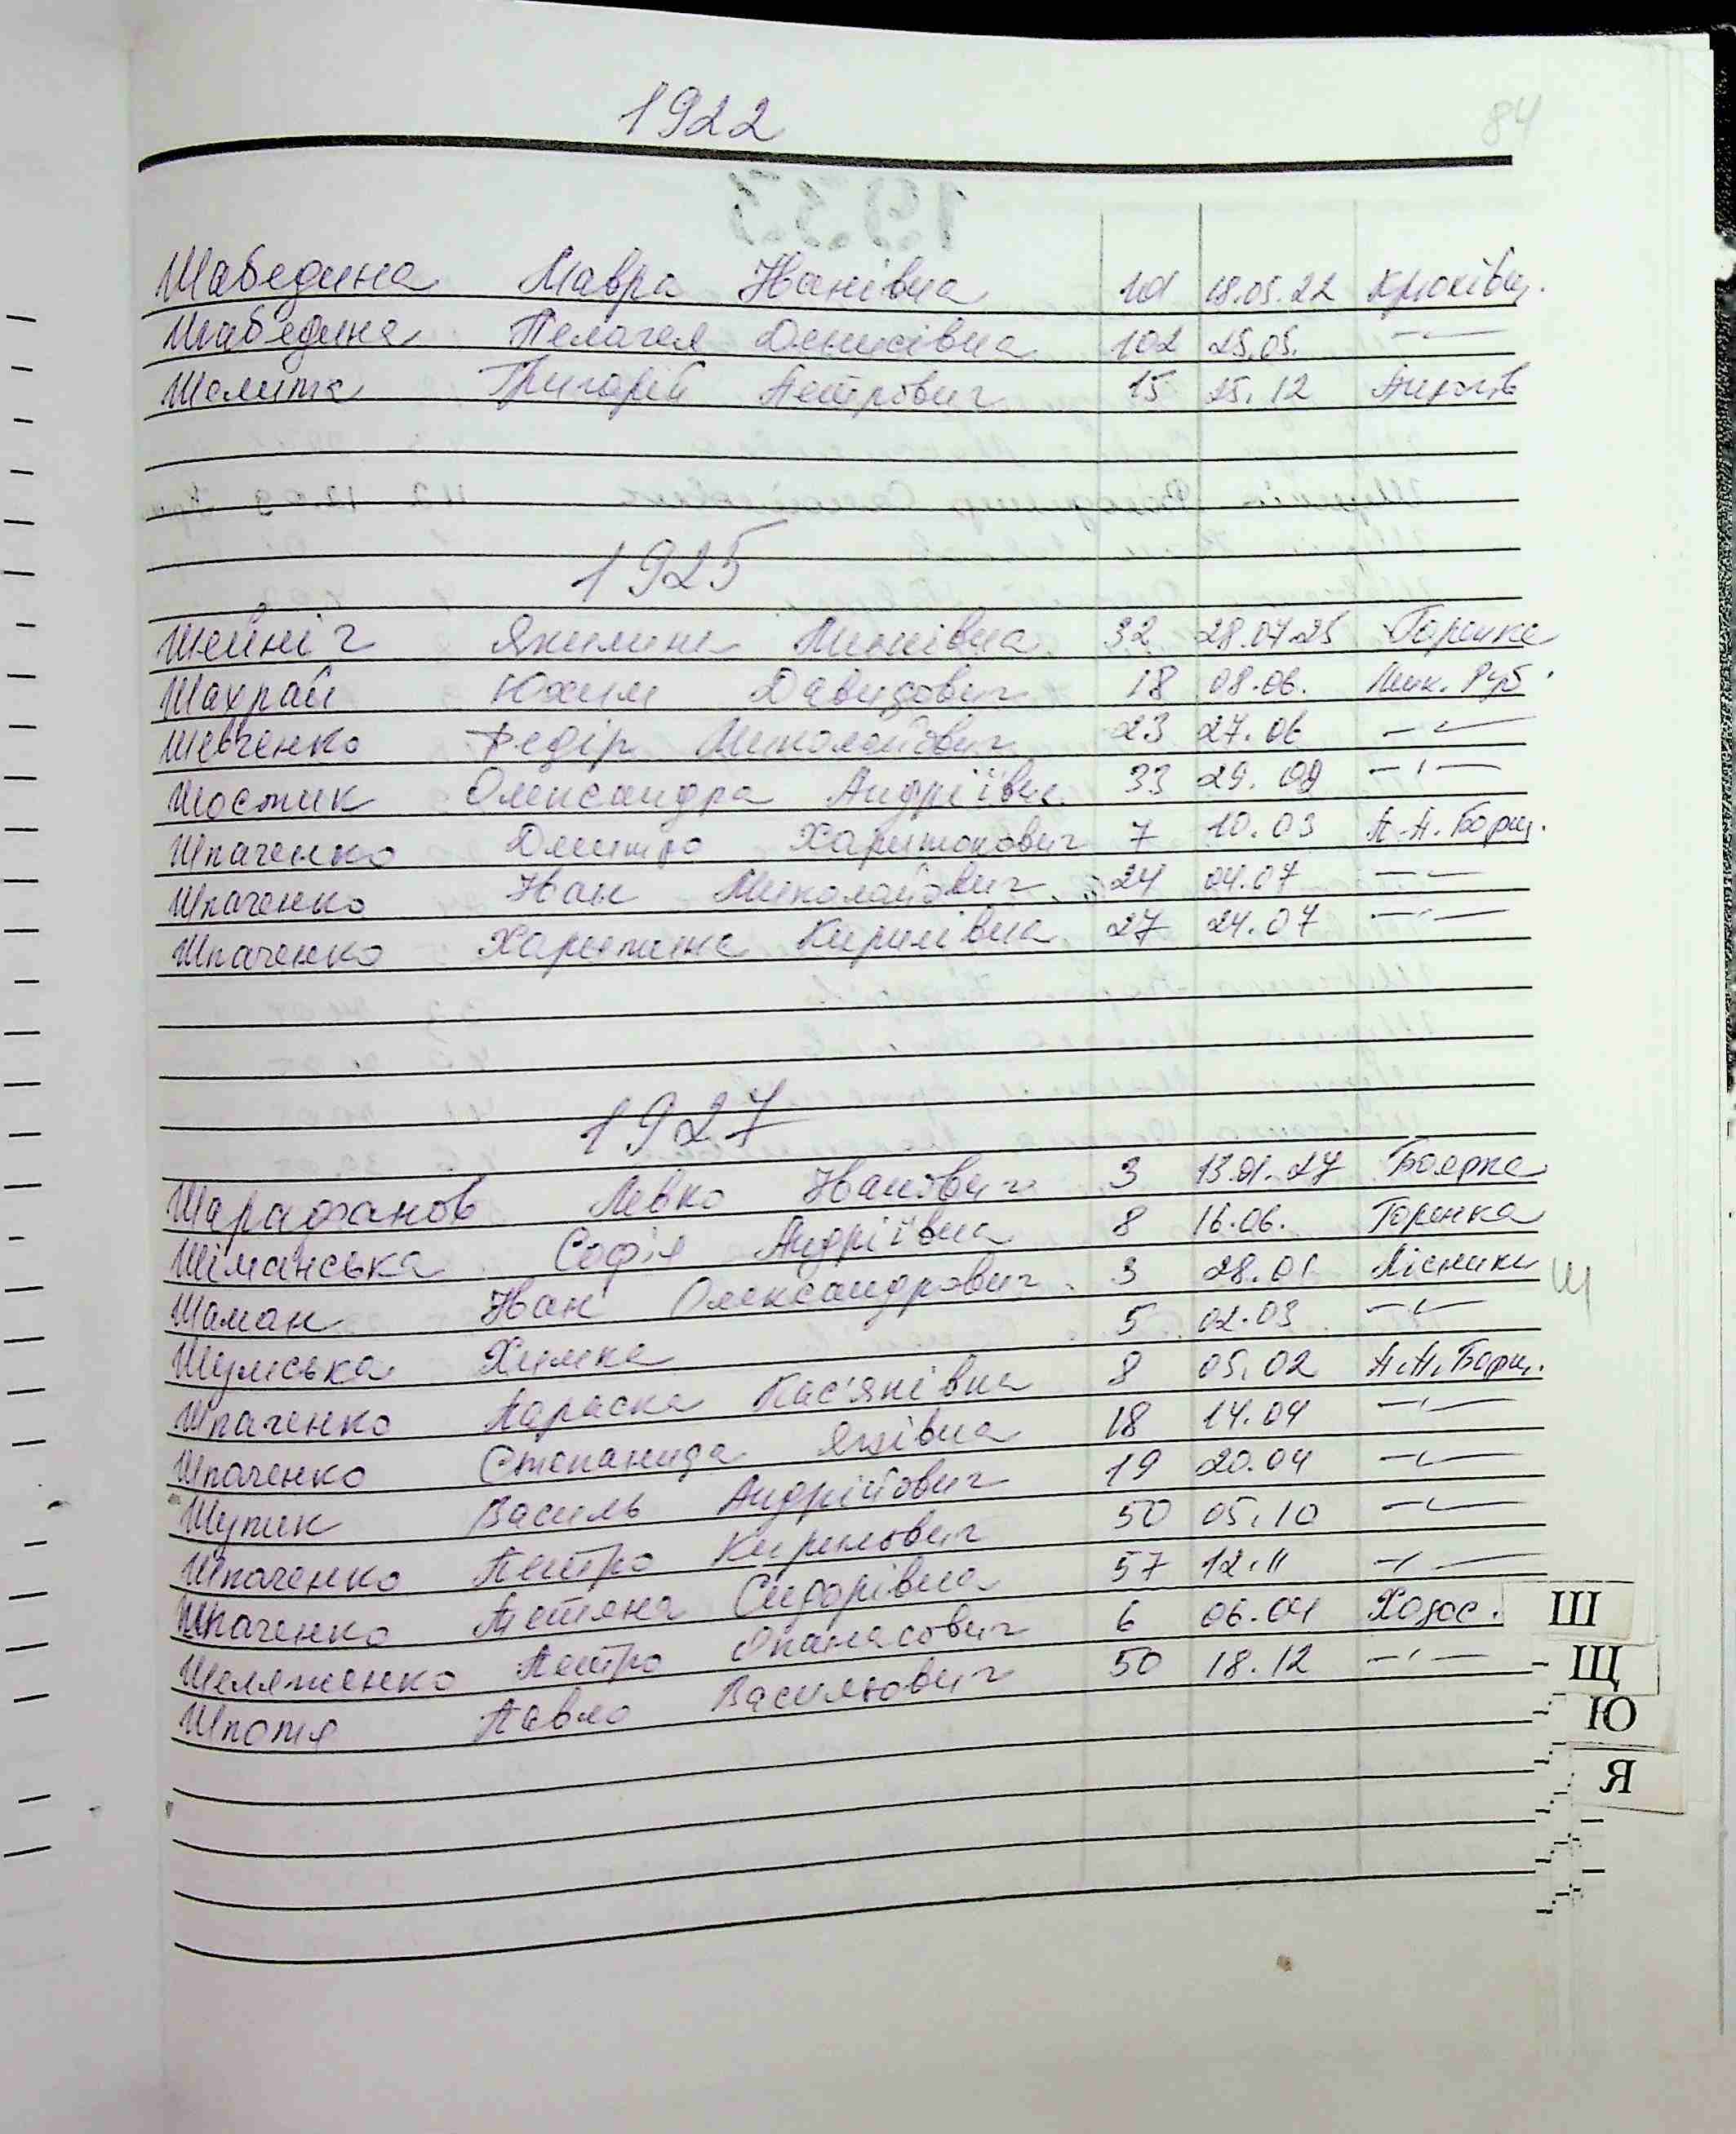 1922
84
Шабедина Мавра Іванівна 101 18.05.22 Крюківщ.
Шабедина Пелагея Денисівна 102 25.05. —"—
Шелита Григорій Петрович 15 25.12
1925
Шейніг Якилина 32 28.07.25 Горенка
Шахрай Юхим Давидович 18 08.06. Мик. Руб.
Шевченко Федір Миколайович 23 27.06 —"—
Шостик Олександра Андріївна 33 29.09 —"—
Шпаченко Дмитро Харитонович 7 10.03 П.П. Борщ.
Шпаченко Іван Миколайович 24 04.07 —"—
Шпаченко Харитина Кирилівна 27 24.07 —"—
1927
Шарафанов Левко Іванович 3 13.01.27 Боярка
Шіманська Софія Андріївна 8 16.06. Горенка
Шаман Іван Олександрович 3 28.01 Лісники
Шумська Химка 5 02.03 —"—
Шпаченко Параска Кас'янівна 8 05.02 П.П. Борщ.
Шпаченко Степанида Яківна 18 14.04 —"—
Шупик Василь Андрійович 19 20.04 —"—
Шпаченко Петро Кирилович 50 05.10 —"—
Шпаченко Тетяна Сидорівна 57 12.11 —"—
Шеляженко Петро Опанасович 6 06.04 Ходос.
Шпотя Павло Васильович 50 18.12 —"—
Ш
Щ
Ю
Я